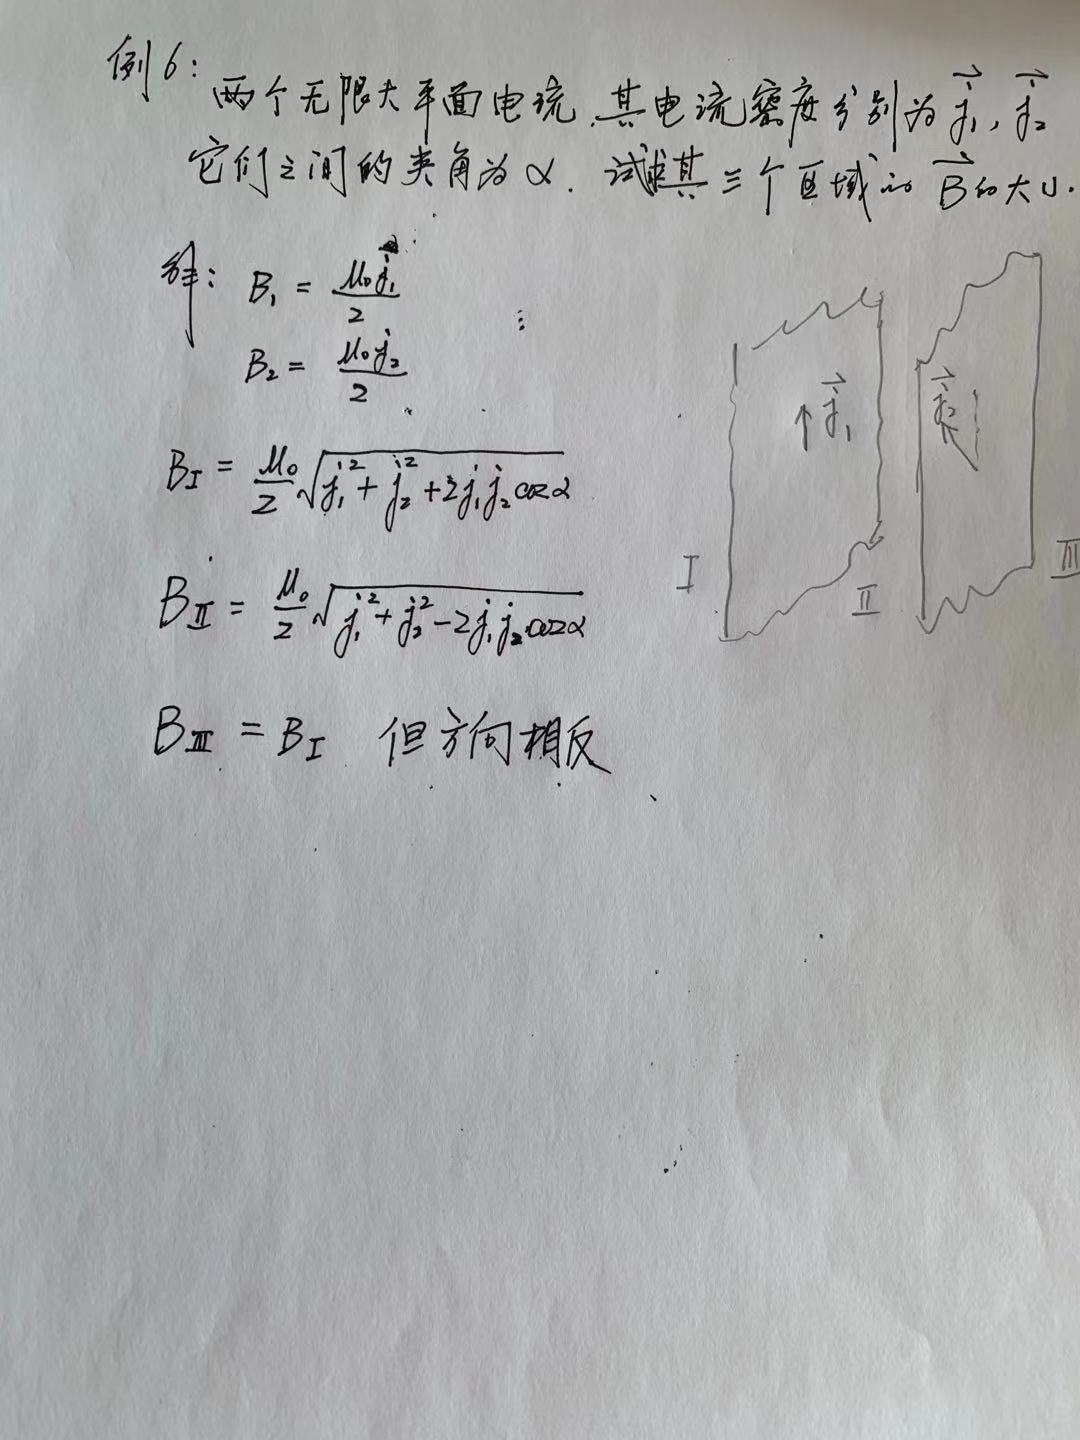 例6:
两个无限大平面电流,其电流密度分别为 j⃗₁, j⃗₂
它们之间的夹角为α. 试求其三个区域的 B⃗的大小.
解: B₁ = μ₀j₁/2
B₂ = μ₀j₂/2
B_Ⅰ = μ₀/2 √(j₁² + j₂² + 2j₁j₂cosα)
B_Ⅱ = μ₀/2 √(j₁² + j₂² - 2j₁j₂cosα)
B_Ⅲ = B_Ⅰ 但方向相反
j⃗₁
j⃗₂
Ⅰ
Ⅱ
Ⅲ